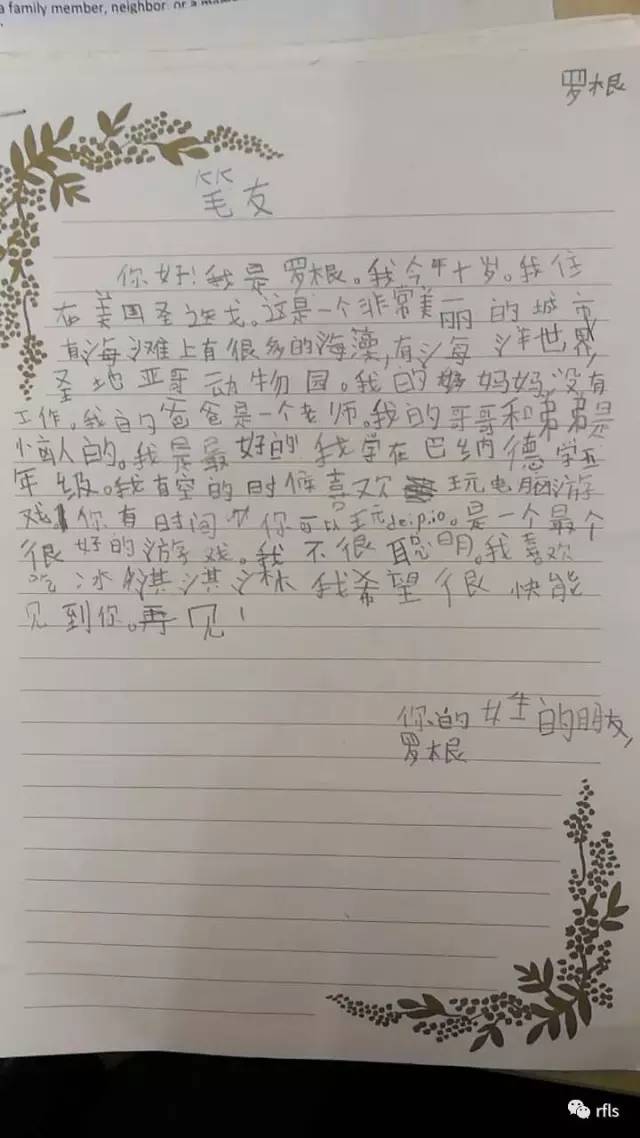 a family member, neighbor, or a
罗根
笔友
你好!我是罗根。我今年十岁。我住
在美国圣迭戈。这是一个非常美丽的城市,
有海滩上有很多的海藻,有海洋世界,
圣地亚哥动物园。我的妈妈没有
工作。我的爸爸是一个老师。我的哥哥和弟弟是
恼人的。我是最好的 我学在巴纳德学五
年级。我有空的时候喜欢 玩电脑游
戏 你有时间 你可以玩deip.io。是一个最个
很好的游戏。我不很聪明。我喜欢
吃冰淇淇淋 我希望很快能
见到你。再见!
你的女生的朋友,
罗根
rfls